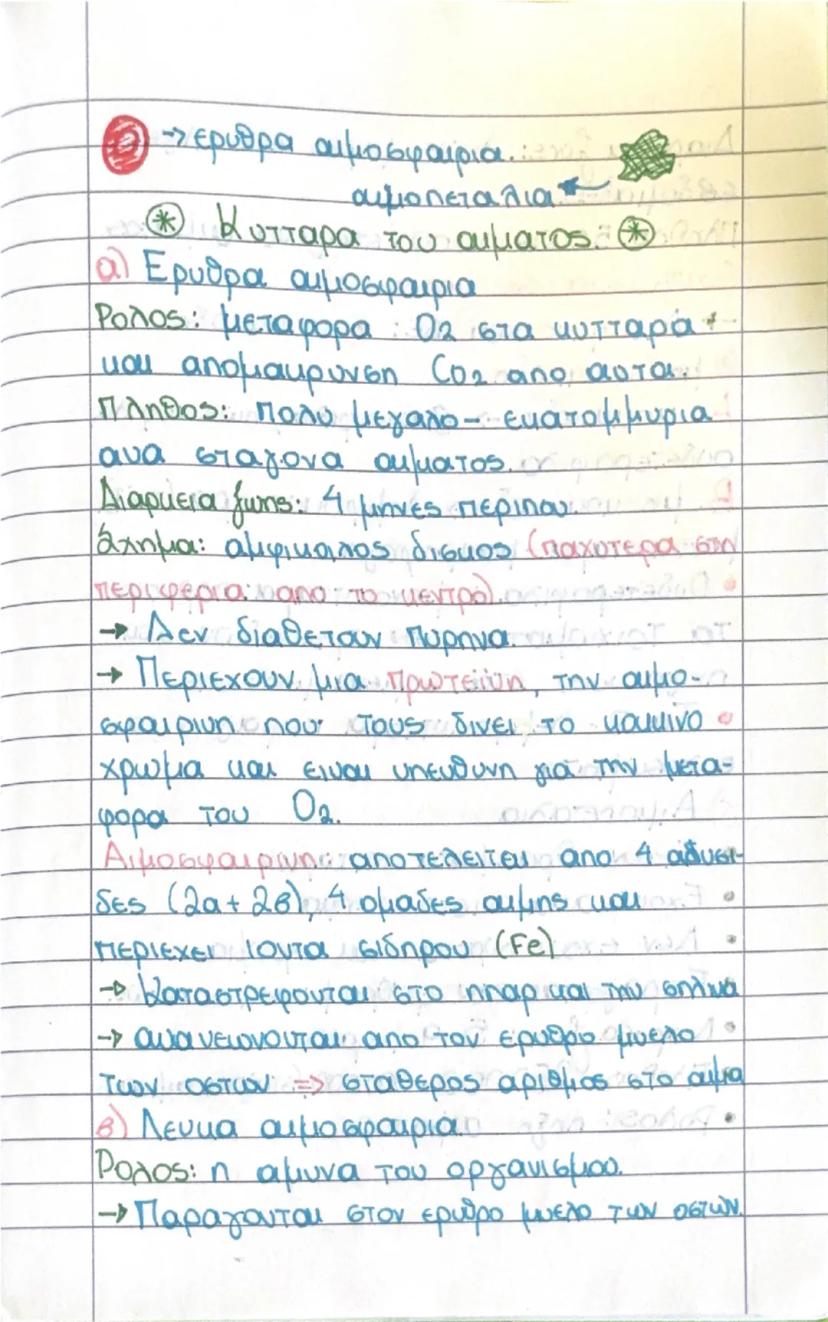 → ερυθρα αιμοσφαιρια.
αιμοπεταλια
* Κυτταρα του αιματος: *
α) Ερυθρα αιμοσφαιρια
Ρολος: μεταφορα O2 στα κυτταρα
και απομακρυνση CO2 απο αυτα.
Πληθος: πολυ μεγαλο - εκατομμυρια
ανα σταγονα αιματος.
Διαρκεια ζωης: 4 μηνες περιπου.
Σχημα: αμφικοιλος δισκος (παχυτερα στη
περιφερια απο το κεντρο).
→ Δεν διαθετουν πυρηνα.
→ Περιεχουν μια πρωτεϊνη, την αιμο-
σφαιρινη που τους δινει το κοκκινο
χρωμα και ειναι υπευθυνη για την μετα-
φορα του O2.
Αιμοσφαιρινη: αποτελειται απο 4 αλυσι-
δες (2α+ 2β), 4 ομαδες αιμης και
περιεχει ιοντα σιδηρου (Fe)
→ Καταστρεφονται στο ηπαρ και την σπληνα
→ ανανεωνονται απο τον ερυθρο μυελο
των οστων => σταθερος αριθμος στο αιμα
β) Λευκα αιμοσφαιρια
Ρολος: η αμυνα του οργανισμου.
→ Παραγονται στον ερυθρο μυελο των οστων.